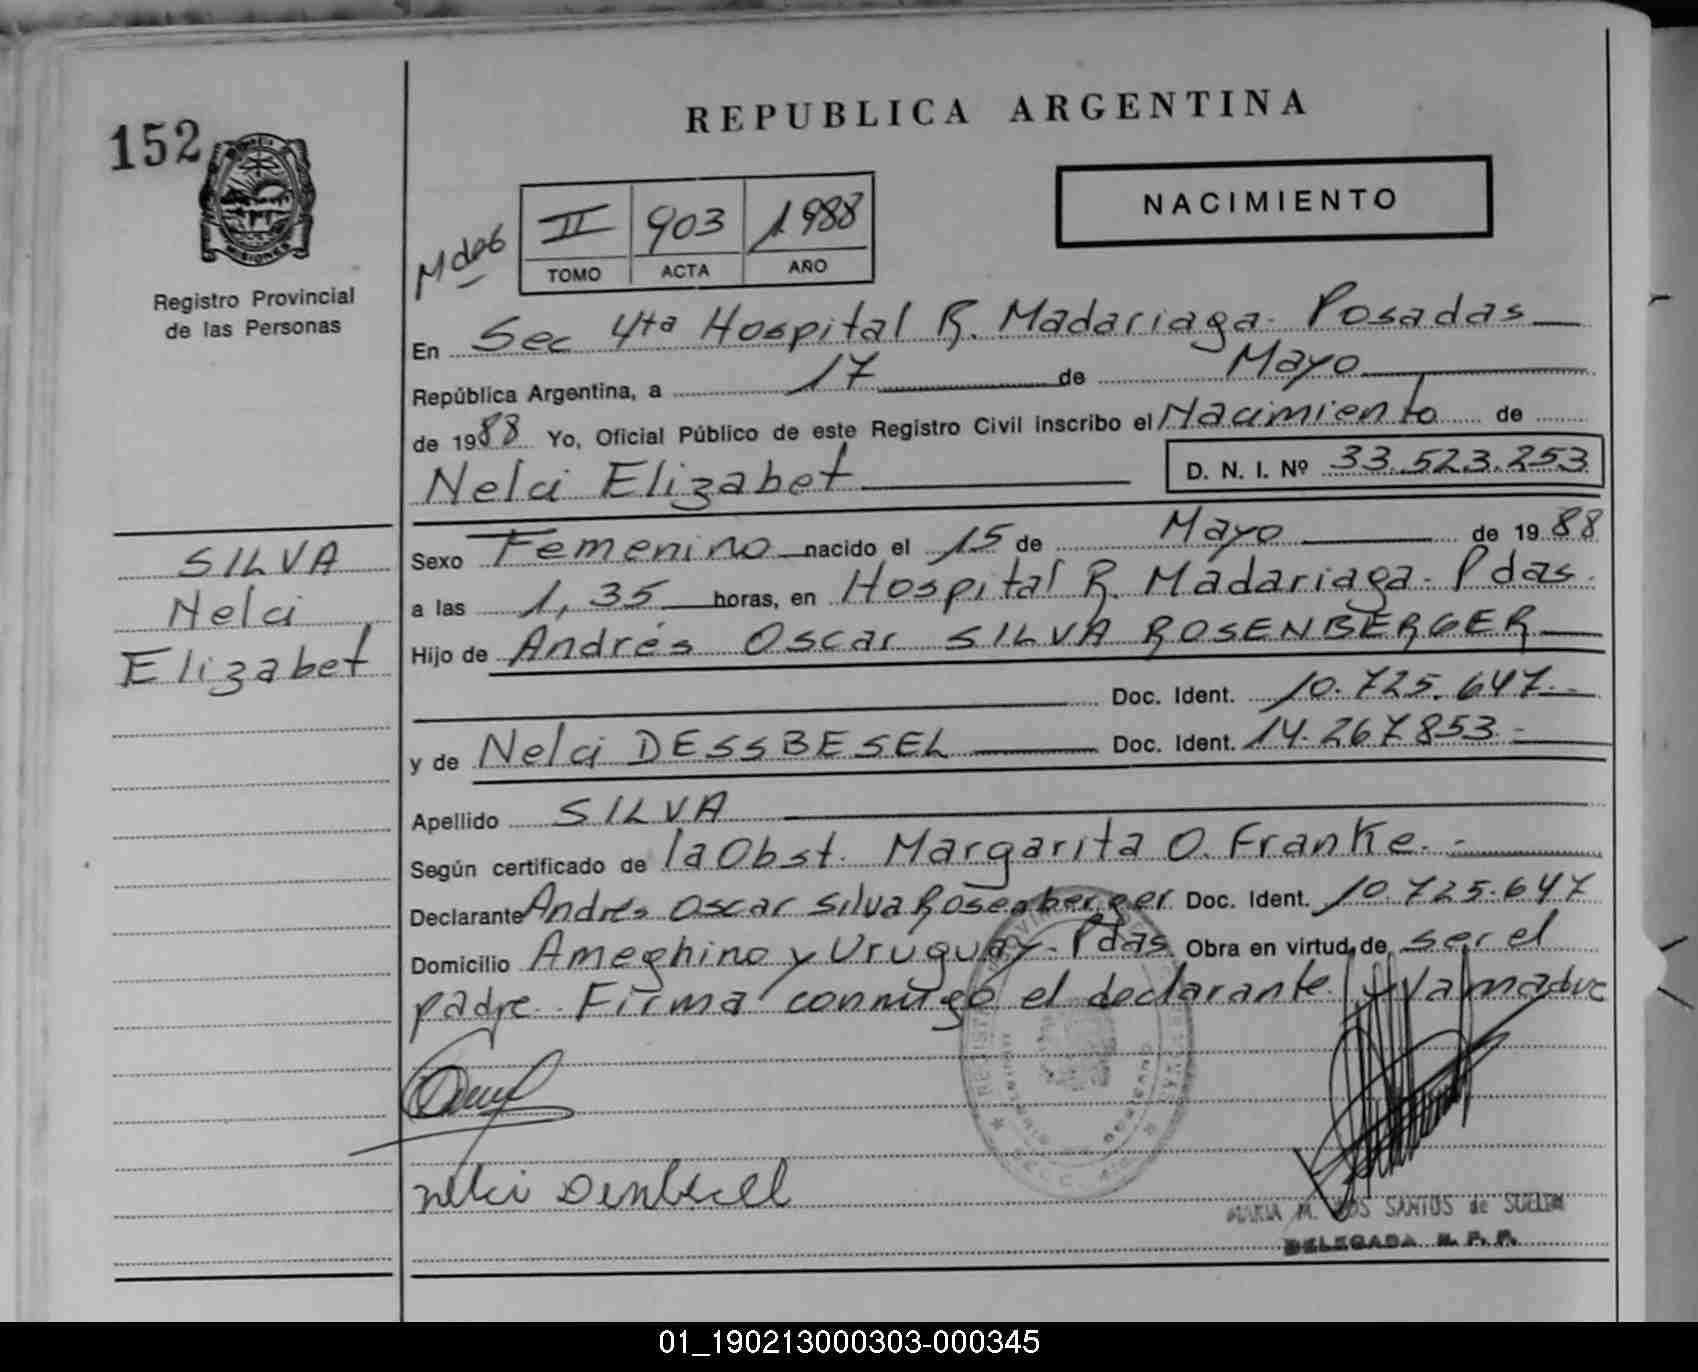 152
REPUBLICA ARGENTINA
NACIMIENTO
MISIONES
Registro Provincial
de las Personas
Mdas
II 903 1988
TOMO ACTA AÑO
En Sec 4ta Hospital R. Madariaga - Posadas
República Argentina, a 17 de Mayo
de 1988 Yo, Oficial Público de este Registro Civil inscribo el Nacimiento de
Nelci Elizabet D. N. I. Nº 33.523.253
SILVA
Nelci
Elizabet
Sexo Femenino nacido el 15 de Mayo de 1988
a las 1,35 horas, en Hospital R. Madariaga - Pdas.
Hijo de Andrés Oscar SILVA ROSENBERGER
Doc. Ident. 10.725.647.-
y de Nelci DESSBESEL Doc. Ident. 14.267.853.-
Apellido SILVA
Según certificado de la Obst. Margarita O. Franke.-
Declarante Andrés Oscar Silva Rosenberger Doc. Ident. 10.725.647
Domicilio Ameghino y Uruguay - Pdas Obra en virtud de ser el
padre. Firma conmigo el declarante y la madre
MARIA M. DOS SANTOS de
DELEGADA R. P. P.
01_190213000303-000345